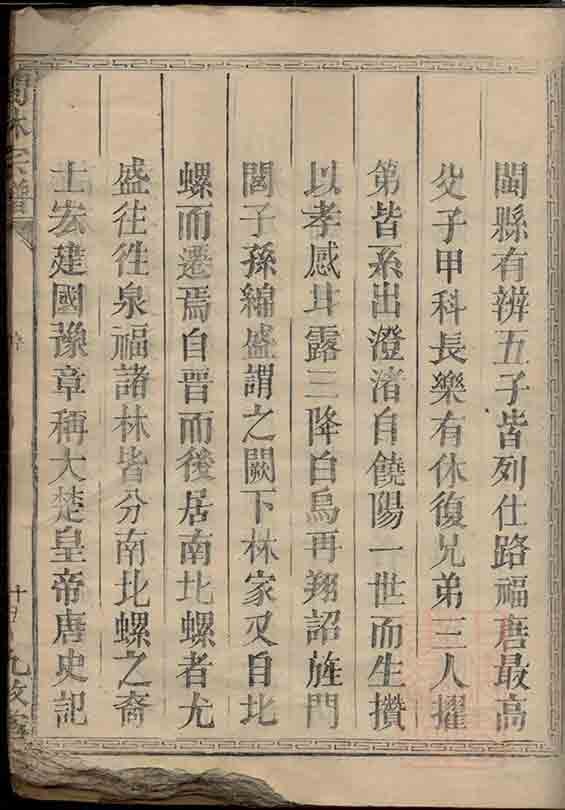 閩縣有辨五子皆列仕路福唐最高
父子甲科長樂有休復兄弟三人擢
第皆系出澄渚自饒陽一世而生攢
以孝感甘露三降白烏再翔詔旌門
閭子孫綿盛謂之闕下林家又自北
螺而遷焉自晋而後居南北螺者尤
盛往徃泉福諸林皆分南北螺之裔
士宏建國豫章稱大楚皇帝唐史記
林宗譜